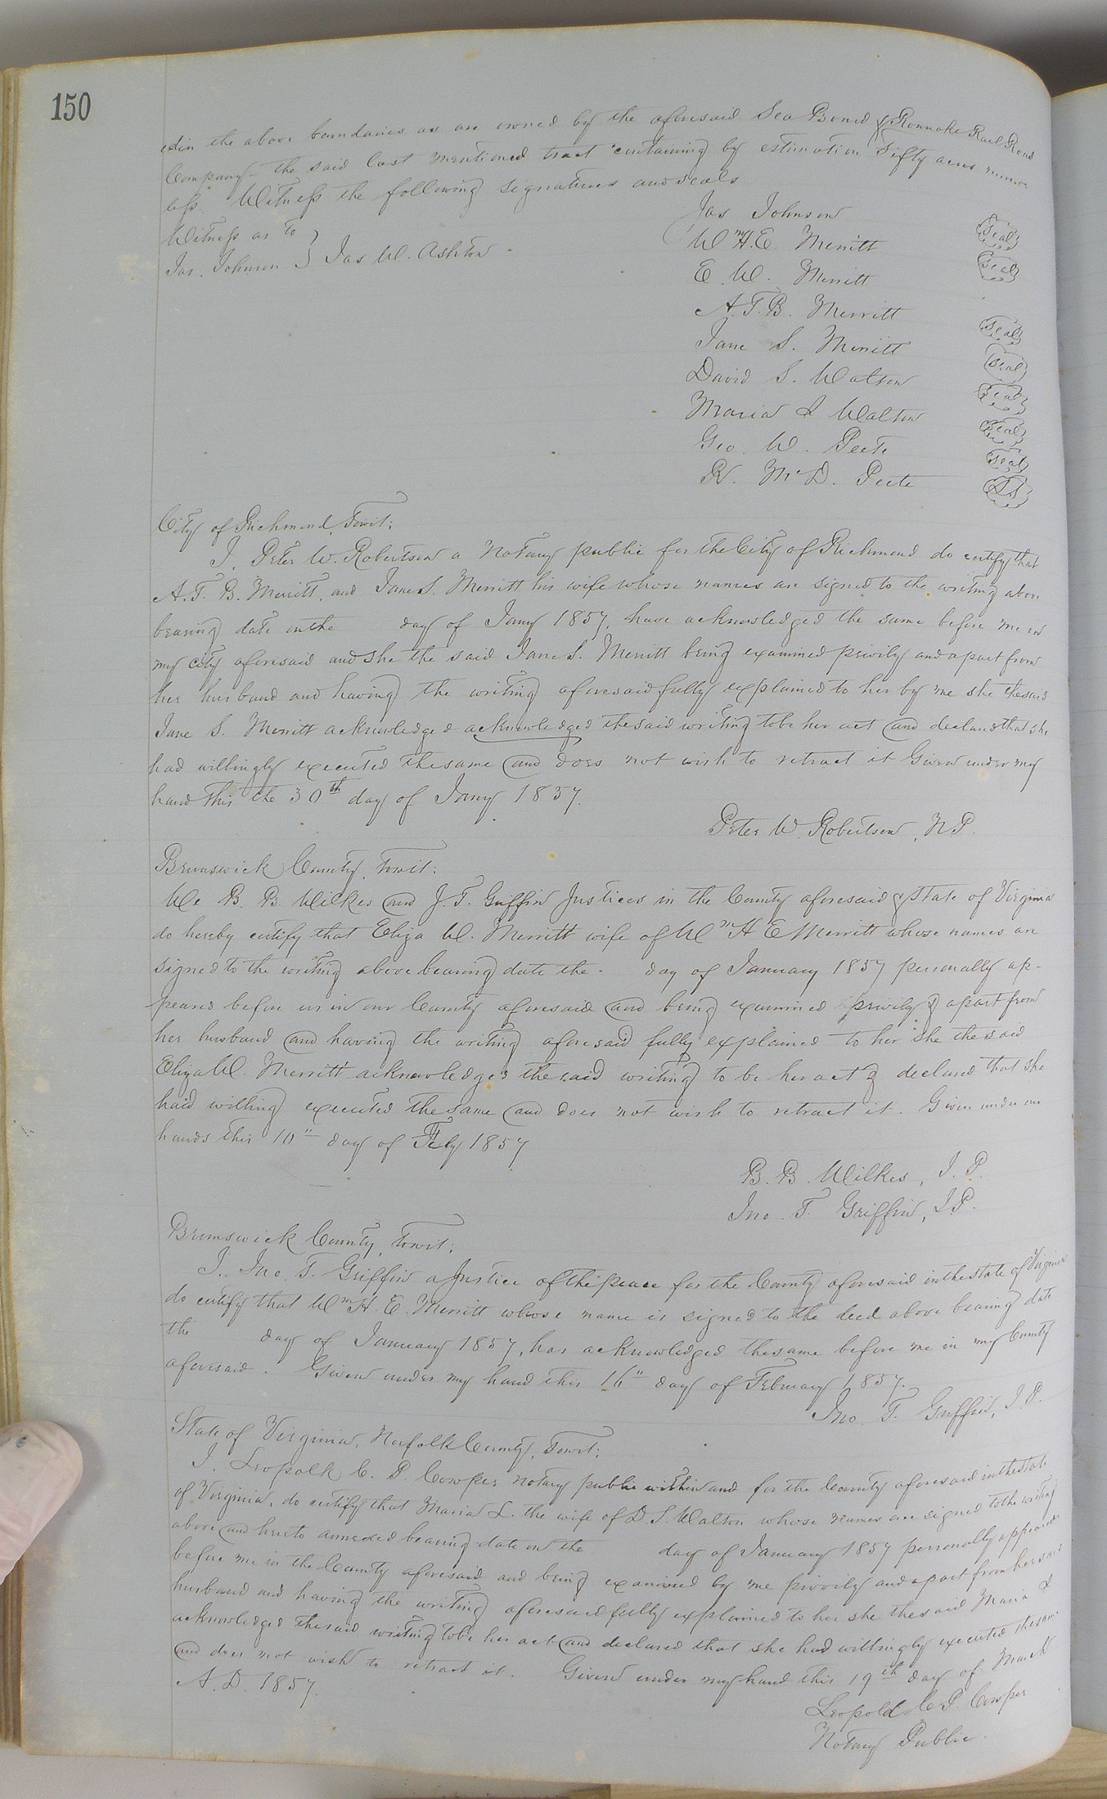 150
edin the above boundaries as are owned by the aforesaid Sea Board & Roanoke Rail Road
Company - the said last mentioned tract containing by estimation fifty acres more or
less. Witness the following signatures and seals
Jas Johnson
Witness as to
Jas. Johnson } Jas W. Ashton.
Wm H. E. Merritt Seal
E. W. Merritt Seal
A. F. B. Merritt
Jane S. Merritt Seal
David S. Walton Seal
Maria L Walton Seal
Geo. W. Peete Seal
R. McD. Peete Seal
LS
City of Richmond, Towit:
I, Peter W. Robertson a Notary public for the City of Richmond do certify that
A. F. B. Merritt, and Jane S. Merritt his wife whose names are signed to the writing above
bearing date on the day of Jany 1857, have acknowledged the same before me in
my city aforesaid and she the said Jane S. Merritt being examined privily and apart from
her husband and having the writing aforesaid fully explained to her by me she the said
Jane S. Merritt acknowledged acknowledged the said writing to be her act and declared that she
had willingly executed the same and does not wish to retract it Given under my
hand this the 30th day of Jany 1857.
Peter W. Robertson, N.P.
Brunswick County, towit:
We B. B. Wilkes and J. F. Griffin Justices in the County aforesaid & State of Virginia
do hereby certify that Eliza W. Merritt wife of Wm H E Merritt whose names are
signed to the writing above bearing date the day of January 1857 personally ap-
peared before us in our County aforesaid and being examined privily & apart from
her husband and having the writing aforesaid fully explained to her she the said
Eliza W. Merritt acknowledges the said writing to be her act & declared that she
haid willing executed the same and does not wish to retract it. Given under our
hands this 10" day of Feby 1857
B. B. Wilkes, J. P.
Jno. F. Griffin, J. P.
Brunswick County, towit:
I. Jno. F. Griffin a Justice of the peace for the County aforesaid in the state of Virginia
do certify that Wm H. E. Merritt whose name is signed to the deed above bearing date
the day of January 1857, has acknowledged the same before me in my County
aforesaid. Given under my hand this 16" day of February 1857.
Jno F. Griffin, J. P.
State of Virginia, Norfolk County, Towit:
I. Leopolk C. P. Cowper Notary public within and for the County aforesaid in the state
of Virginia, do certify that Maria L. the wife of D S. Walton whose names are signed to the writing
above and hereto annexed bearing date on the day of January 1857 personally appeared
before me in the County aforesaid and being examined by me privily and apart from her said
husband and having the writing aforesaid fully explained to her she the said Maria L
acknowledged the said writing to be her act and declared that she had willingly executed the same
and does not wish to retract it. Given under my hand this 19th day of March
A. D. 1857.
Leopold C. P. Cowper
Notary Public.